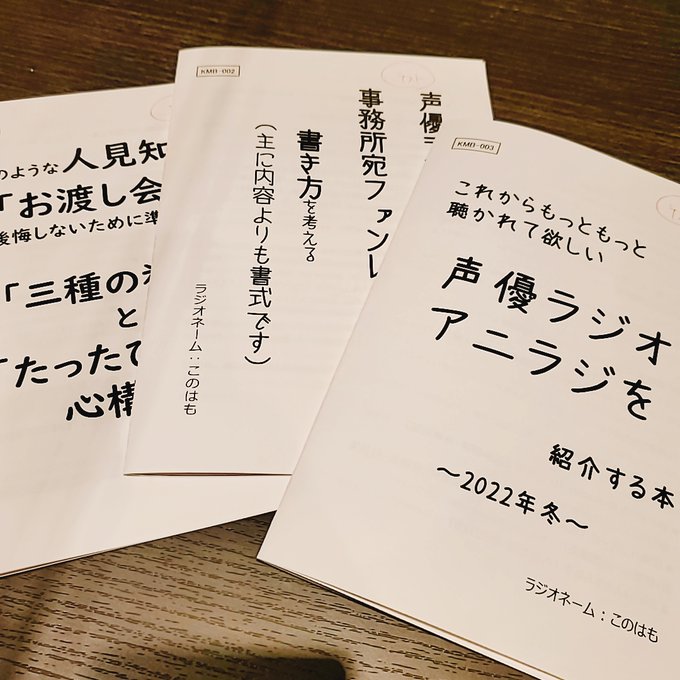 のような人見知
「お渡し会
後悔しないために準
「三種の
と
「たったひ
心構
KMB-002
声優
事務所宛ファンレ
書き方を考える
(主に内容よりも書式です)
ラジオネーム:このはも
KMB-003
これからもっともっと
聴かれて欲しい
声優ラジオ
アニラジを
紹介する本
~2022年冬~
ラジオネーム:このはも